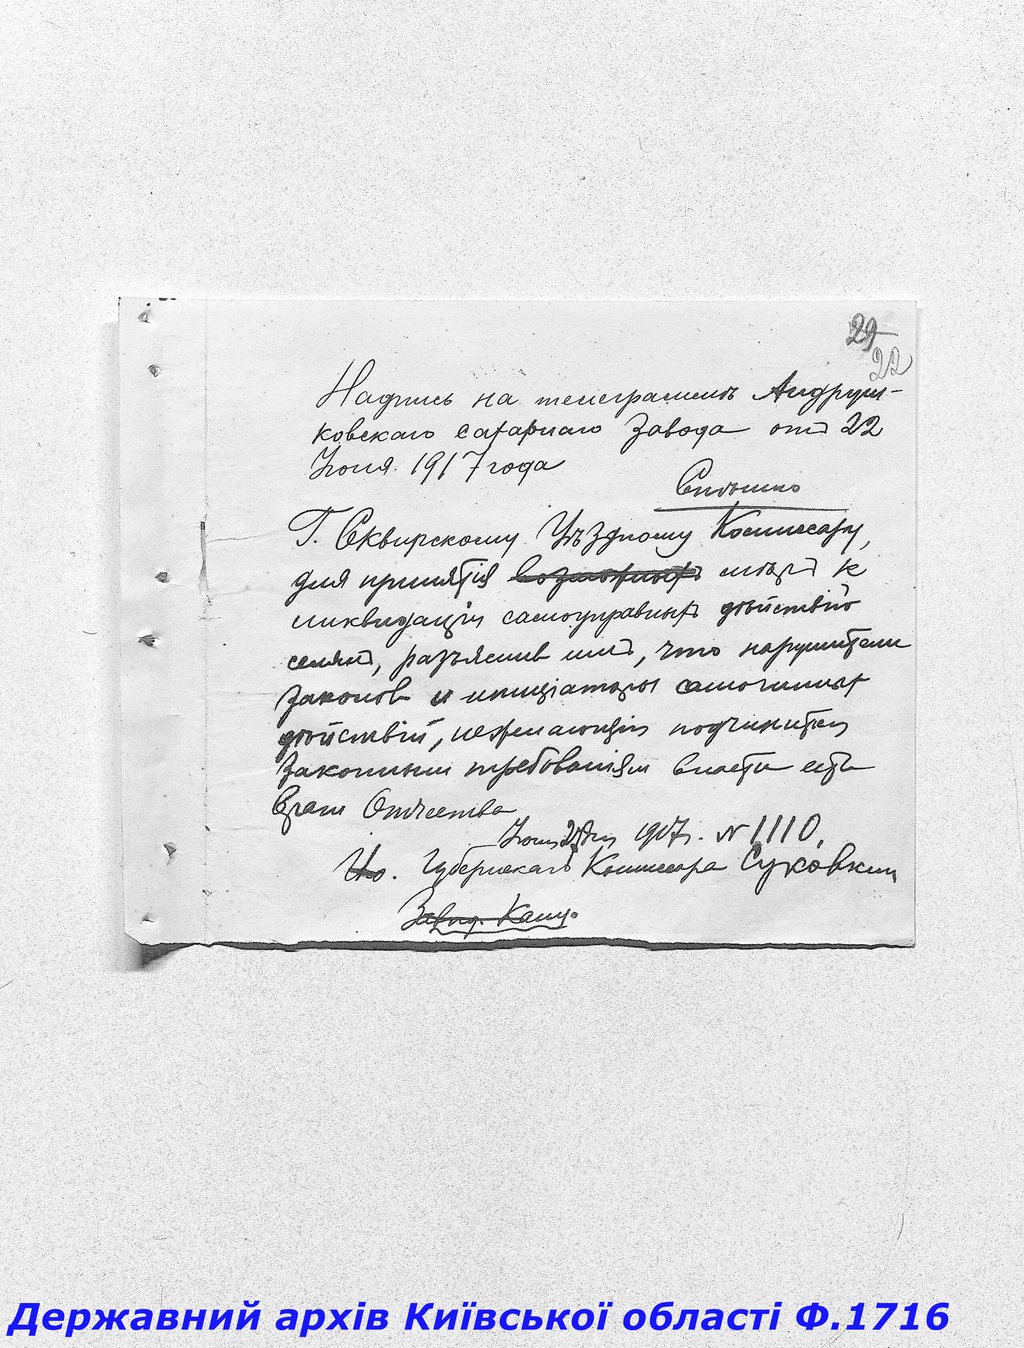 29
22
Надпись на телеграммѣ Андруш-
ковскаго сахарнаго Завода отъ 22
Іюня 1917 года
Спѣшно
Г. Сквирскому Уѣздному Комиссару,
для принятія возможныхъ мѣръ к
ликвидаціи самоуправныхъ дѣйствій
селянъ, разъяснив имъ, что нарушители
законов и иниціаторы самочинных
дѣйствій, нежелающіи подчинитьси
законным требованіям власти есть
враги Отечества
Іюня 1917 г. № 1110.
И.о. Губернскаго Комиссара Суковкин
Завид. Канц.
Державний архів Київської області Ф.1716